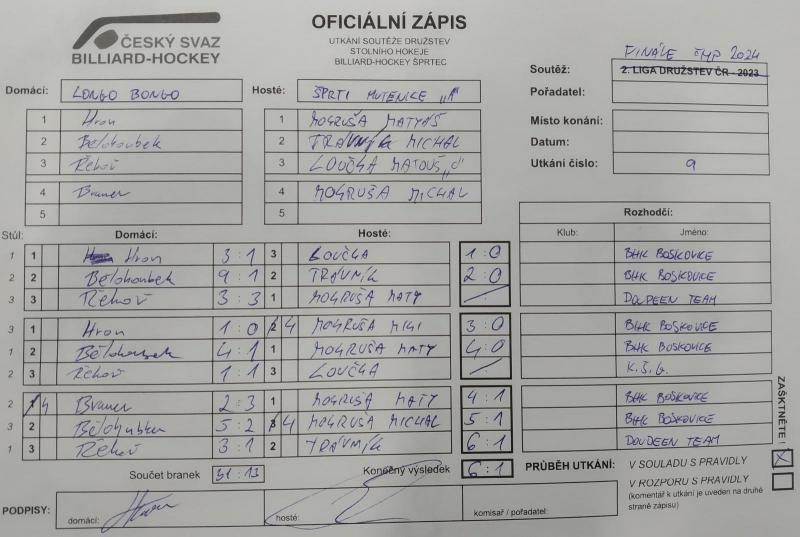 ČESKÝ SVAZ
BILLIARD-HOCKEY
OFICIÁLNÍ ZÁPIS
UTKÁNÍ SOUTĚŽE DRUŽSTEV
STOLNÍHO HOKEJE
BILLIARD-HOCKEY ŠPRTEC
FINÁLE ČMP 2024
Soutěž: 2. LIGA DRUŽSTEV ČR - 2023
Pořadatel:
Místo konání:
Datum:
Utkání číslo: 9
Domácí: LONGO BONGO
1 Hron
2 Bělohoubek
3 Řehoř
4 Bruner
5
Hosté: ŠPRTI MUTĚNICE „A“
1 MOKRUŠA MATYÁŠ
2 TRÁVNÍK MICHAL
3 LOUČKA MATOUŠ „C“
4 MOKRUŠA MICHAL
5
Rozhodčí:
Klub: Jméno:
Stůl: Domácí: Hosté:
1 1 Hron 3:1 3 LOUČKA 1:0 BHK BOSKOVICE
2 2 Bělohoubek 9:1 2 TRÁVNÍK 2:0 BHK BOSKOVICE
3 3 Řehoř 3:3 1 MOKRUŠA MATY DOUDEEN TEAM
3 1 Hron 1:0 4 MOKRUŠA MIKI 3:0 BHK BOSKOVICE
1 2 Bělohoubek 4:1 1 MOKRUŠA MATY 4:0 BHK BOSKOVICE
2 3 Řehoř 1:1 3 LOUČKA K.Š.G.
2 4 Bruner 2:3 1 MOKRUŠA MATY 4:1 BHK BOSKOVICE
3 2 Bělohoubek 5:2 4 MOKRUŠA MICHAL 5:1 BHK BOSKOVICE
1 3 Řehoř 3:1 2 TRÁVNÍK 6:1 DOUDEEN TEAM
Součet branek 31:13
Konečný výsledek 6:1
PRŮBĚH UTKÁNÍ:
V SOULADU S PRAVIDLY X
V ROZPORU S PRAVIDLY
(komentář k utkání je uveden na druhé
straně zápisu)
ZAŠKTNĚTE!
PODPISY: domácí: hosté: komisař / pořadatel: